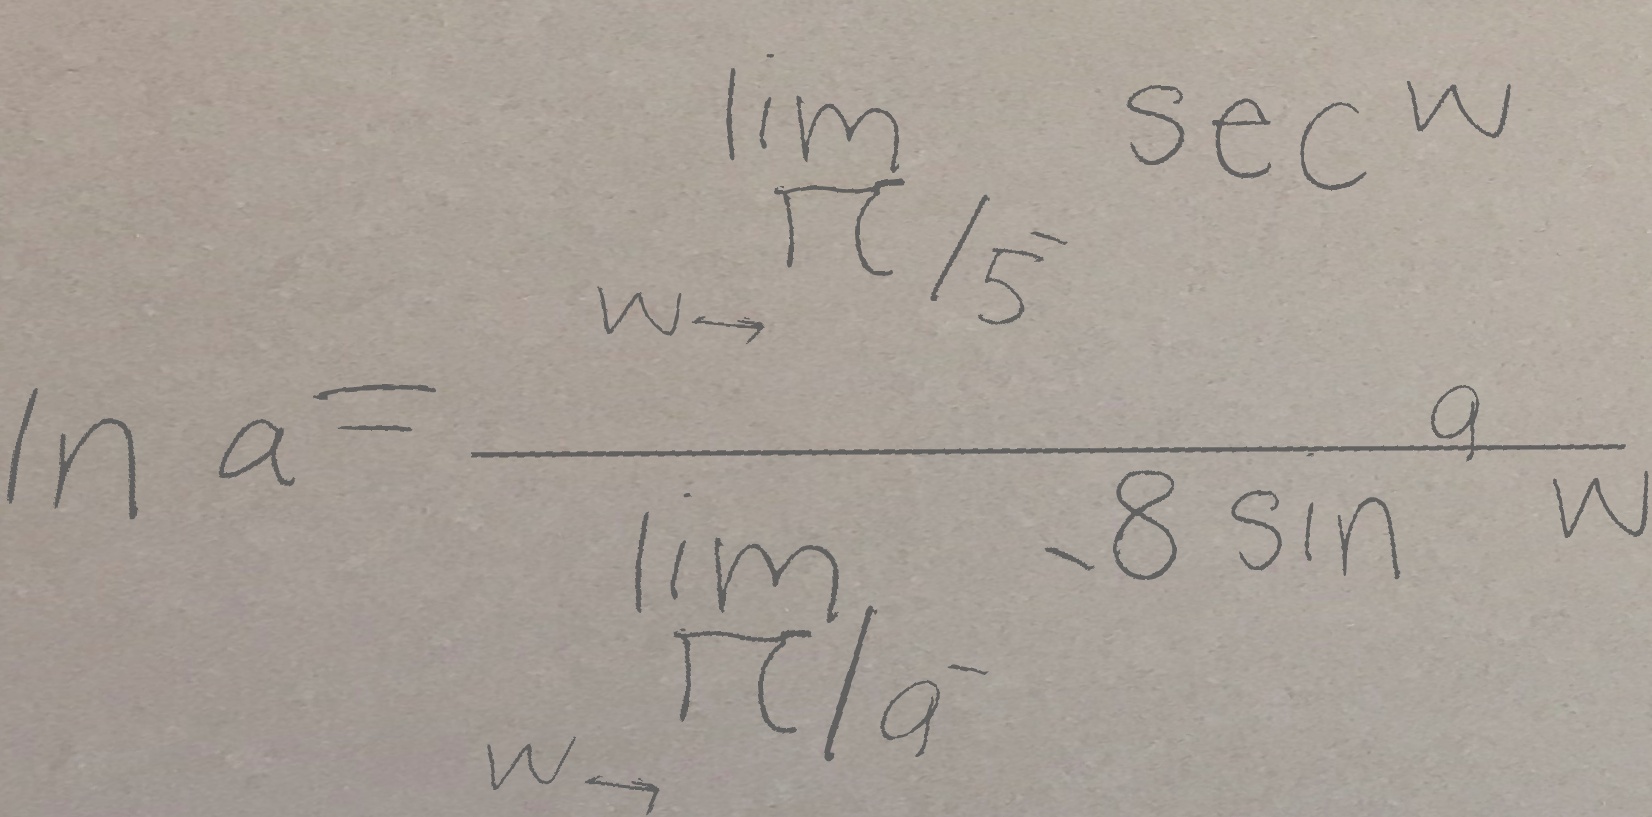 \ln a = \frac{\lim_{w \to \pi/5^-} \sec w}{\lim_{w \to \pi/9^-} -8 \sin^9 w}